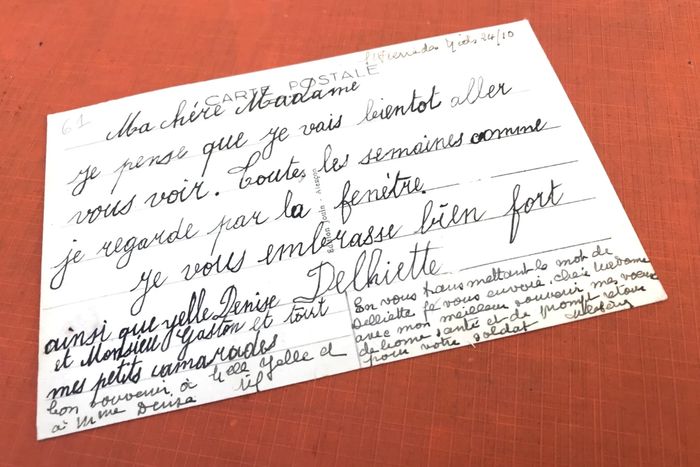 61
24/10
CARTE POSTALE
Ma chére Madame
je pense que je vais bientot aller
vous voir. Toutes les semaines comme
je regarde par la fenétre.
je vous embrasse bien fort
Delhiette
ainsi que yelle Denise
et Monsieur Gaston et tout
mes petits camarades
bon souvenir à Melle Yelle et
à Mme Denise
En vous transmettant le mot de
Delhiette je vous envoie, chère Madame
avec mon meilleur souvenir mes voeux
de bonne santé et de prompt retour
pour votre soldat
Edition Joulin - Alençon